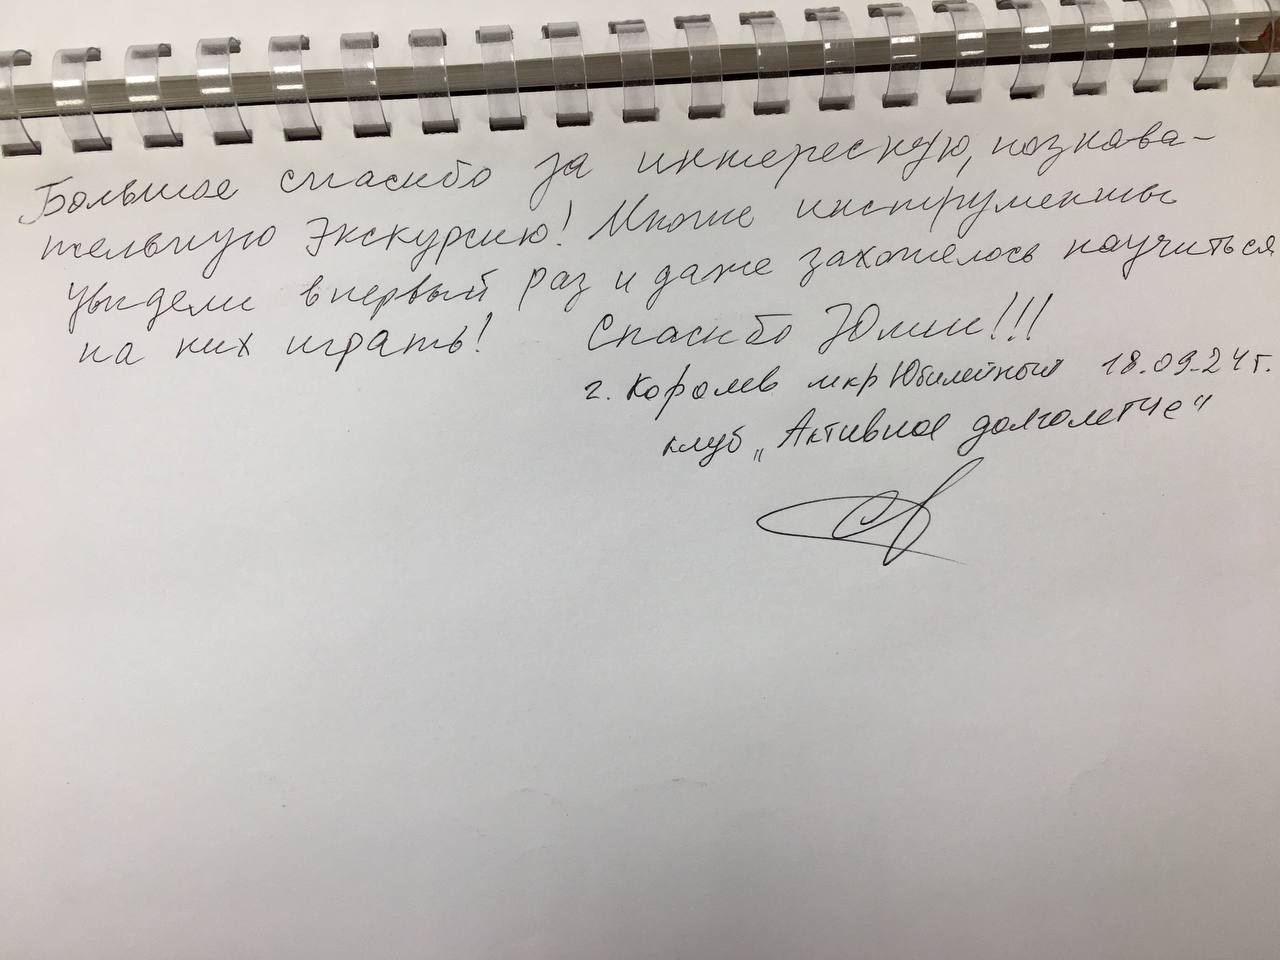 Большое спасибо за интересную, познава-
тельную экскурсию! Многие инструменты
увидели впервый раз и даже захотелось научиться
на них играть! Спасибо Юлии!!!
г. Королев мкр Юбилейный 18.09.24г.
клуб „Активное долголетие"